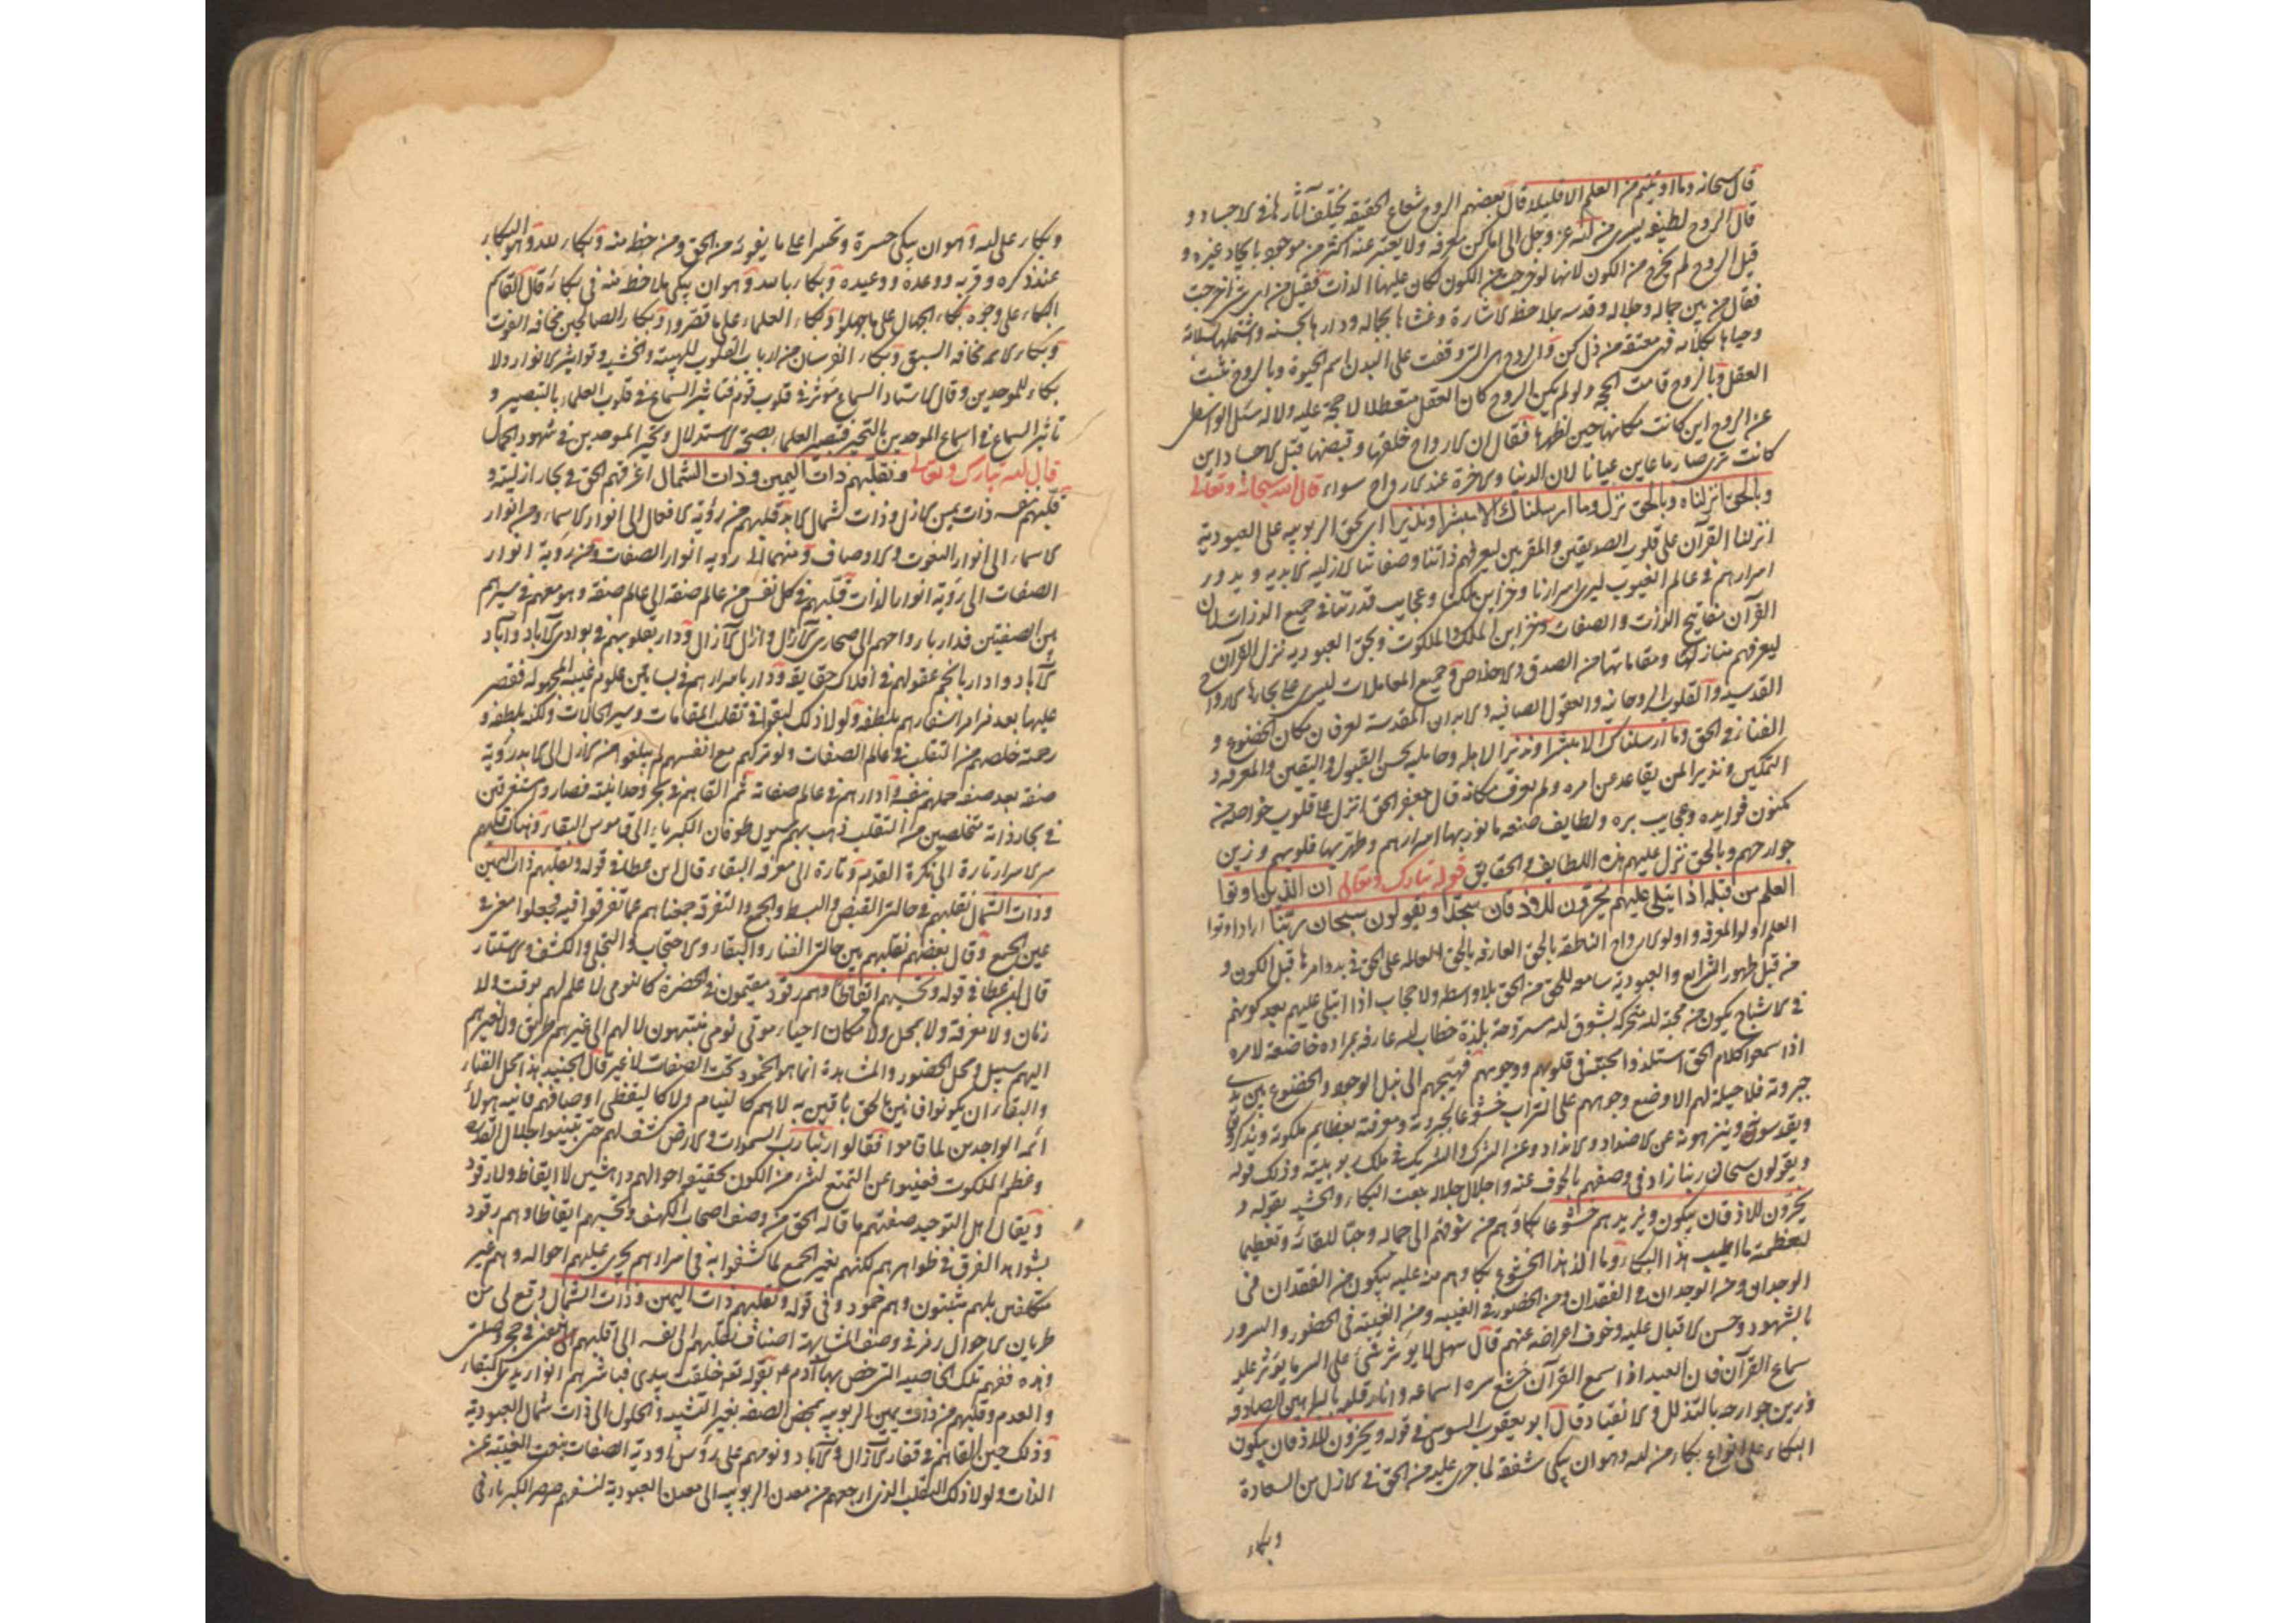 قال سبحانه وما اوتيتم من العلم الا قليلا قال بعضهم الروح شعاع الحقيقة يختلف آثارها في الاجساد و
قال الروح لطيفة يسري من الله عز وجل الى اماكن معروفة ولا يعبر عنه اكثر من موجود بايجاد غيره و
قيل الروح لم يخرج من الكون لانها لو خرجت من الكون لكان عليها الذات فقيل من اي شئ خرجت
فقال من بين جماله وجلاله وقدسه بملاحظة الاشارة وغشاها بجماله ورداها بحسنه واستملها بسلامه
وحياها بكلامه فهي معتقة من ذل كن والروح هي التي وقفت على البدن اسم الحيوة وبالروح ثبت
العقل وبالروح قامت الحجة ولو لم يكن الروح كان العقل متعطلا لا حجة عليه ولا له سئل الواسطي
عن الروح اين كانت مكانها حين اظهرها فقال ان الارواح خلقها وقبضها قبل الاجساد اين
كانت ترى صار ما عاين عيانا لان الدنيا والاخرة عند الارواح سواء قال الله سبحانه وتعالى
وبالحق انزلناه وبالحق نزل وما ارسلناك الا مبشرا ونذيرا اي بحق الربوبية على العبودية
انزلنا القرآن على قلوب الصديقين والمقربين ليعرفهم ذاتنا وصفاتنا الازلية الابدية ويدور
اسرارهم في عالم الغيوب ليرى اسرارنا وخزاين ملكنا وعجايب قدرتنا في جميع الذرات لان
القرآن مفاتيح الذات والصفات وخزاين الملك والملكوت وبحق العبودية نزل القرآن
ليعرفهم منازلها ومقاماتها من الصدق والاخلاص في جميع المعاملات ليسري على بحارها الارواح
القدسية والقلوب الروحانية والعقول الصافية والابدان المقدسة لعرفان مكان الخضوع و
الفناء في الحق وما ارسلناك الا مبشرا ونذيرا لاهله وحامليه بحسن القبول واليقين والمعرفة و
التمكين ونذيرا لمن تقاعد عن امره ولم يعرف مكانه قال جعفر الحق انزل على قلوب خواصه من
مكنون فوايده وعجايب بره ولطايف صنعه ما نور بها اسرارهم وطهر بها قلوبهم وزين
جوارحهم وبالحق نزل عليهم هذه اللطايف والحقايق قوله تبارك وتعالى ان الذين اوتوا
العلم من قبله اذا يتلى عليهم يخرون للاذقان سجدا ويقولون سبحان ربنا اراد اوتوا
العلم اولو المعرفة واولو الارواح الناطقة بالحق العارفة بالحق العالمة على الحق في بدو امرها قبل الكون و
من قبل ظهور الشرايع والعبودية سامعة للحق من الحق بلا واسطة ولا حجاب اذا يتلى عليهم بعد كونهم
في الاشباح يكون من محبة الله متحركة بشوق الله مستروحة بلذة خطاب الله عارفة بمراده خاضعة لامره
اذا سمعوا كلام الحق استلذوا محبته في قلوبهم ووجوههم فهيجهم الى نيل الوجود والخضوع بين يدي
جبروته فلا حيلة لهم الا وضع وجوههم على التراب خشوعا لجبروته ومعرفة بعظايم ملكوته
ويقدسونه وينزهونه عن الاضداد والانداد وعن الشرك والشريك في ملك ربوبيته وذلك قوله
ويقولون سبحان ربنا زاد في وصفهم بالخوف عنه واجلال جلاله بنعت البكاء والخشية بقوله و
يخرون للاذقان يبكون ويزيدهم خشوعا بكاؤهم من شوقهم الى جماله وحبا للقائه وتعظيما
لعظمته ما اطيب هذا البكاء وما الذ هذا الخشوع بكاؤهم منه عليه يبكون من الفقدان في
الوجدان ومن الوجدان في الفقدان ومن الحضور في الغيبة ومن الغيبة في الحضور والسرور
بالشهود وحسن الاقبال عليه وخوف اعراضه عنهم قال سهل لا يؤثر شئ على السر ما يؤثر عليه
سماع القرآن فان العبد اذا سمع القرآن خشع سره لسماعه وانار قلبه بالبراهين الصادقة
وزين جوارحه بالتذلل والانقياد قال ابو يعقوب السوسي في قوله ويخرون للاذقان يبكون
البكاء على انواع بكاء من الله وهو ان يبكي شفقة لما جرى عليه من الحق في الازل من السعادة
وبكاء
وبكاء على الله وهو ان يبكي حسرة وتحسرا على ما يفوته من الحق ومن حظه منه وبكاء لله وهو البكاء
عند ذكره وقربه ووعده ووعيده وبكاء بالله وهو ان يبكي بلا حظ منه في بكائه قال القاسم
البكاء على وجوه بكاء الجهال على ما جهلوا وبكاء العلماء على ما قصروا وبكاء الصالحين مخافة الفوت
وبكاء الائمة مخافة السبق وبكاء الفرسان من ارباب القلوب للهيبة والخشية وتواتر الانوار ولا
بكاء للموحدين وقال الاستاد السماع مؤثر في قلوب قوم فتاثير السماع في قلوب العلماء بالتبصير و
تاثير السماع في اسماع الموحدين بالتحير فتبصير العلماء بصحة الاستدلال وتحير الموحدين في شهود الجمال
قال الله تبارك وتعالى ونقلبهم ذات اليمين وذات الشمال اغرقهم الحق في بحار ازليته و
قلبهم بنفسه ذات يمين الازل وذات شمال الابد قلبهم من رؤية الافعال الى انوار الاسماء ومن انوار
الاسماء الى انوار النعوت والاوصاف ومنهما الى رؤية انوار الصفات ومن رؤية انوار
الصفات الى رؤية انوار الذات فقلبهم في كل نفس من عالم صفة الى عالم صفة وهو معهم في سيرهم
بين الصفتين فدار بارواحهم الى صحاري الآزال وازل الآزال ودار بقلوبهم في بوادي الآباد وآباد
الآباد وادار بانجم عقولهم في افلاك حقايقه ودار باسرارهم في بساتين علوم غيبه المجهولة فقصر
عليها بعد فرار اسفارهم بلطفه ولولا ذلك لبقوا في تقلب المقامات وسير الحالات ولكنه بلطفه و
رحمته خلصهم من التقلب في عالم الصفات ولو تركهم مع انفسهم لم يبلغوا من الازل الى الابد رؤية
صفة بعد صفة حملهم بنفسه وادارهم في عالم صفاته ثم القاهم في بحر وحدانيته فصاروا مستغرقين
في بحار ذاته متخلصين من التقلب ذهب بهم سيول طوفان الكبرياء الى قاموس البقاء وهناك قلبهم
تارة الى نكرة القدم وتارة الى معرفة البقاء قال ابن عطا في قوله ونقلبهم ذات اليمين
وذات الشمال نقلبهم في حالتي القبض والبسط والجمع والتفرقة جمعناهم عما تفرقوا فيه فجعلوا معي في
عين الجمع وقال بعضهم نقلبهم بين حالتي الفناء والبقاء والاحتجاب والتجلي والكشف والاستتار
قال ابن عطا في قوله وتحسبهم ايقاظا وهم رقود مقيمون في الحضرة كالنومى لا علم لهم بوقت ولا
زمان ولا معرفة ولا بمحل ولا مكان احياء موتى نومى منتبهون لا لهم الى غيرهم طريق ولا لغيرهم
اليهم سبيل ومحل الحضور والمشاهدة انما هو الخمود تحت الصفات لا غير قال الجنيد هذا محل الفناء
والبقاء ان يكونوا فانين بالحق باقين به لا هم كالنيام ولا كاليقظى اوصافهم فانية هؤلاء
ائمة الواجدين لما قاموا فقالوا ربنا رب السموات والارض كشف لهم حتى تبينوا جلال القدرة
وعظم الملكوت فغيبوا عن التمتع بشئ من الكون بحقيقة احوالهم داهشين لا ايقاظ ولا رقود
ويقال اهل التوحيد صفتهم ما قاله الحق من وصف اصحاب الكهف وتحسبهم ايقاظا وهم رقود
بشواهد الفرق في ظواهرهم لكنهم بعين الجمع لما كشفوا به في اسرارهم يجري عليهم احواله وهم غير
متكلفين بل هم مثبتون وهم خمود وفي قوله ونقلبهم ذات اليمين وذات الشمال وقع لي من
طريان الاحوال رمز في وصف المشابهة اضاف تقلبهم الى نفسه اي اقلبهم
وهذه تلك الخاصية التي خص بها آدم بقوله خلقت بيدي فباشرهم انوار يدي البقاء
والقدم وقلبهم من ذات يمين الربوبية بمحض الصفة بغير التشبيه والحلول الى ذات شمال العبودية
وذلك حين القاهم في قفار الآزال والآباد ونومهم على رؤس اودية الصفات بنعت الغيبة عن
الذات ولولا ذلك التقلب الذي ارجعهم من معدن الربوبية الى معدن العبودية لنسفهم صرصر الكبرياء في